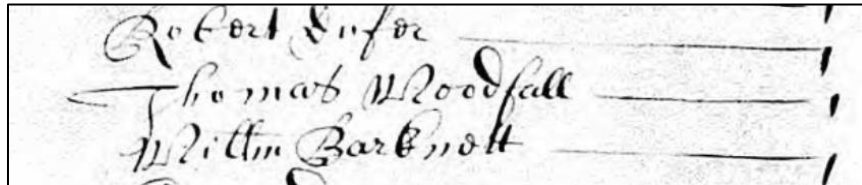 Robert Lufer
Thomas Woodfall
Willm Barknett